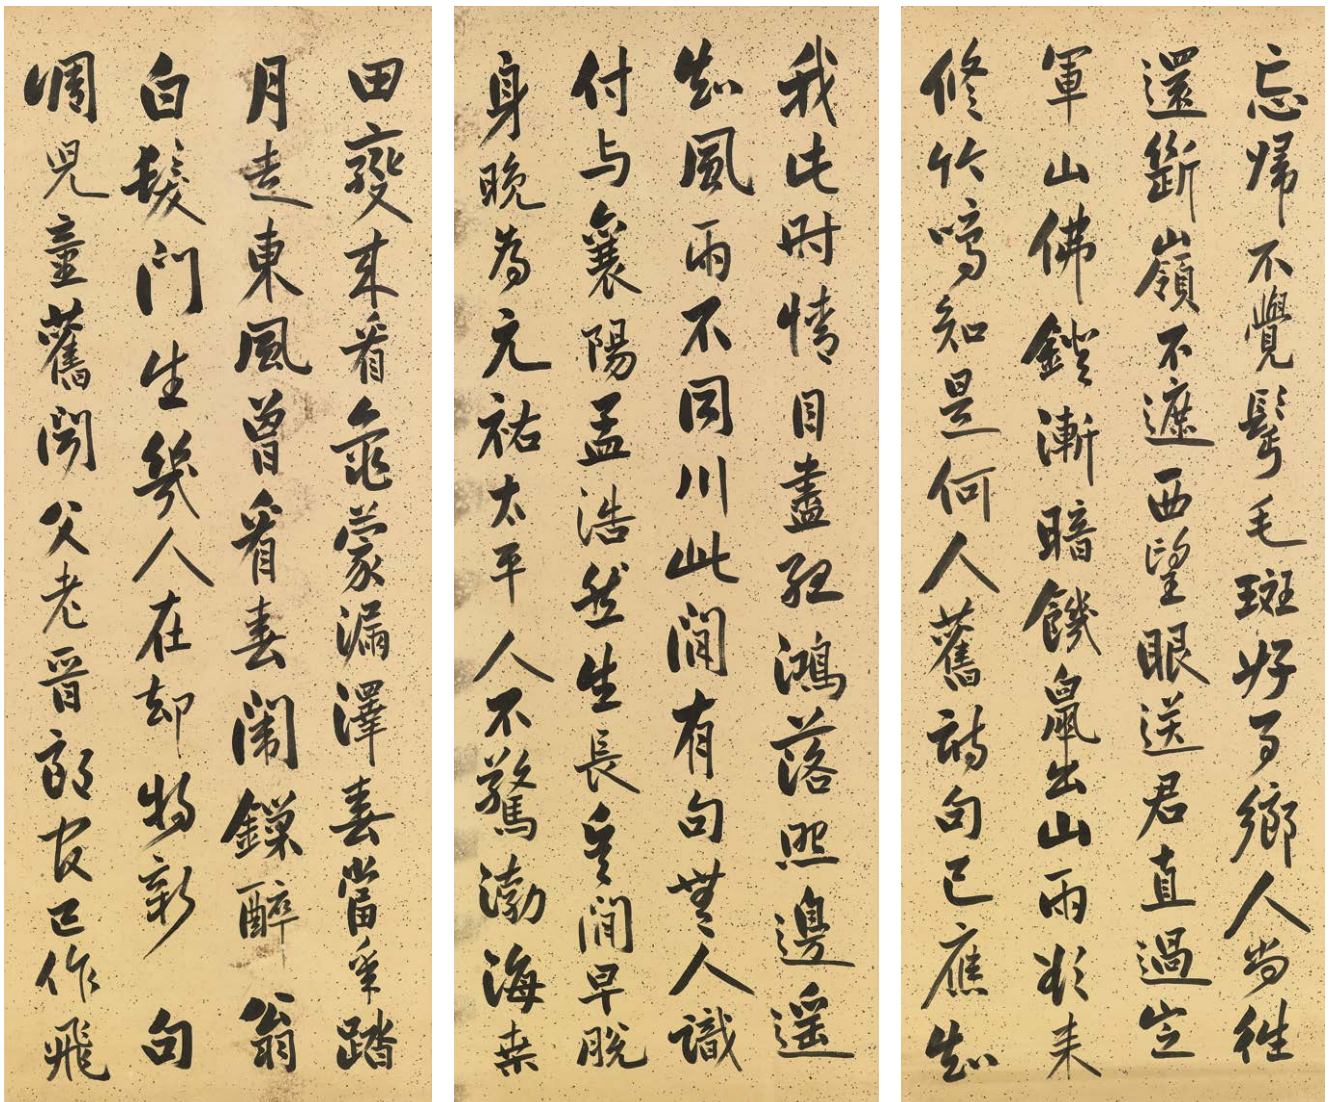 忘歸不覺鬢毛斑好事鄉人尚往
還斷嶺不遮西望眼送君直過定
軍山佛鐙漸暗饑鼠出山雨欲来
修竹鳴知是何人舊詩句已應知
我此时情目盡孤鴻落照邊遥
知風雨不同川此間有句無人識
付与襄陽孟浩然生長兵間早脫
身晚為元祐太平人不驚渤海桒
田變来看龜蒙漏澤春當年踏
月走東風曾看春闈鏁醉翁
白髮門生幾人在却将新句
調兒童舊聞父老晉郎官已作飛